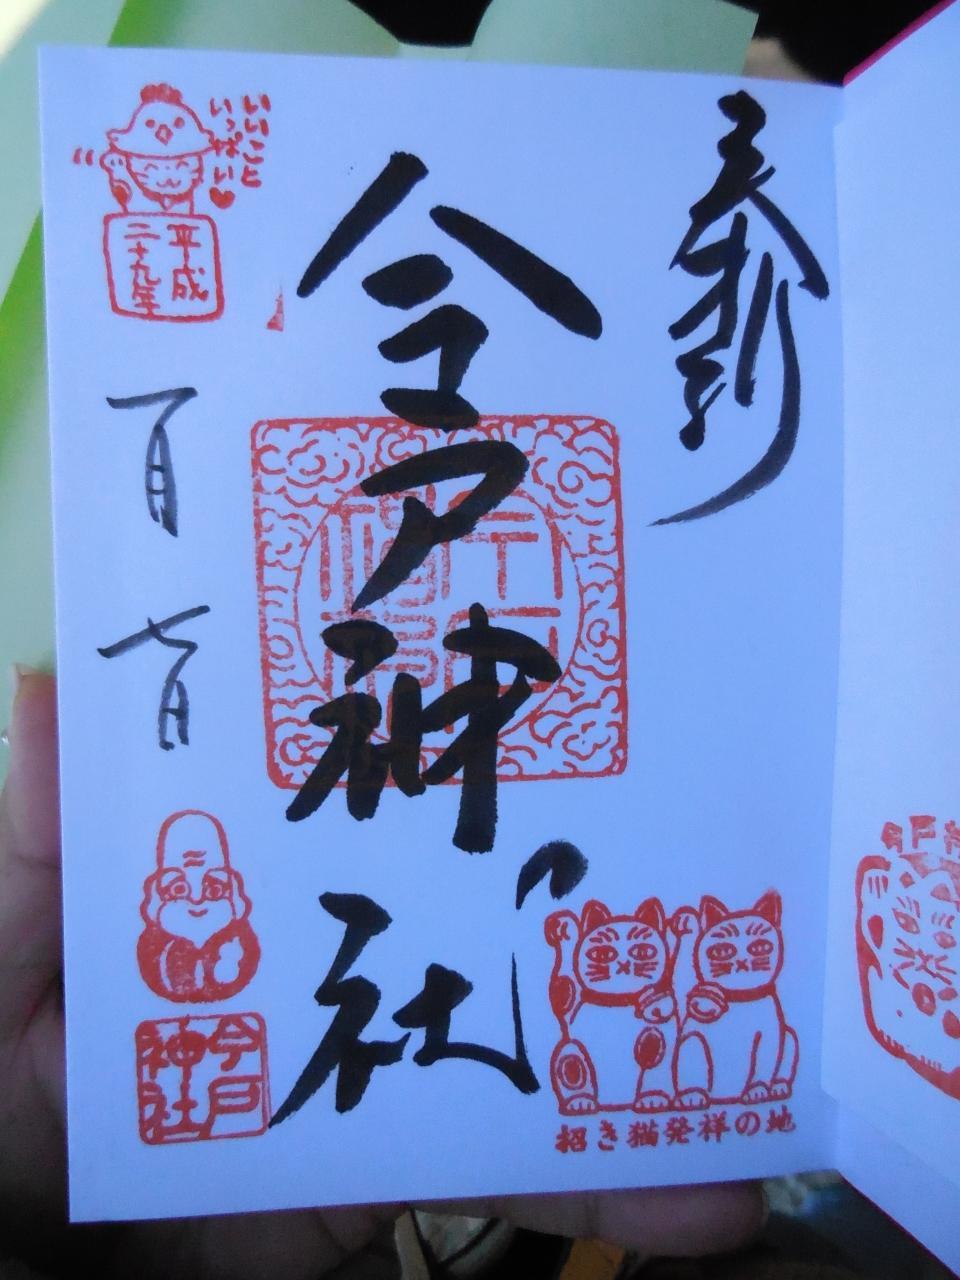 奉拝
今戸神社
いいこと
いっぱい♥
平成
二十九年
一月
七日
今戸
神社
招き猫発祥の地